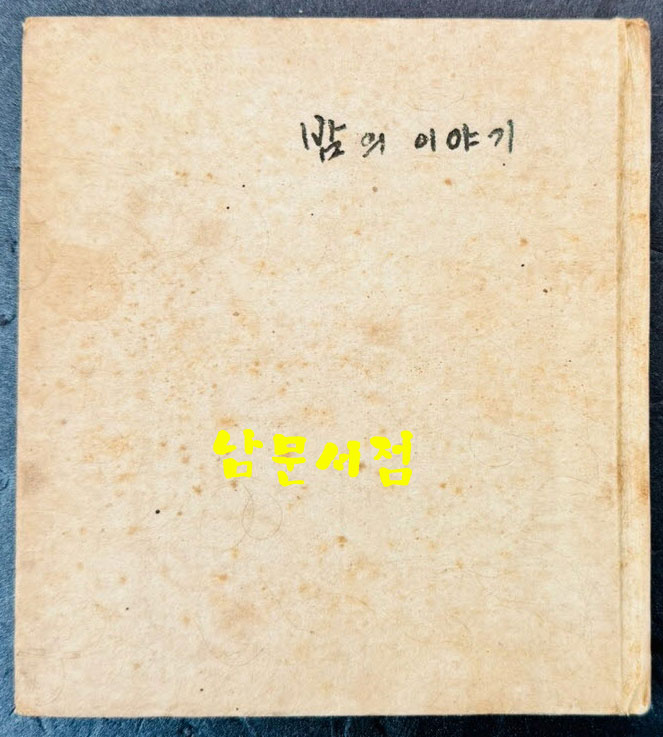 밤의 이야기
남문서점